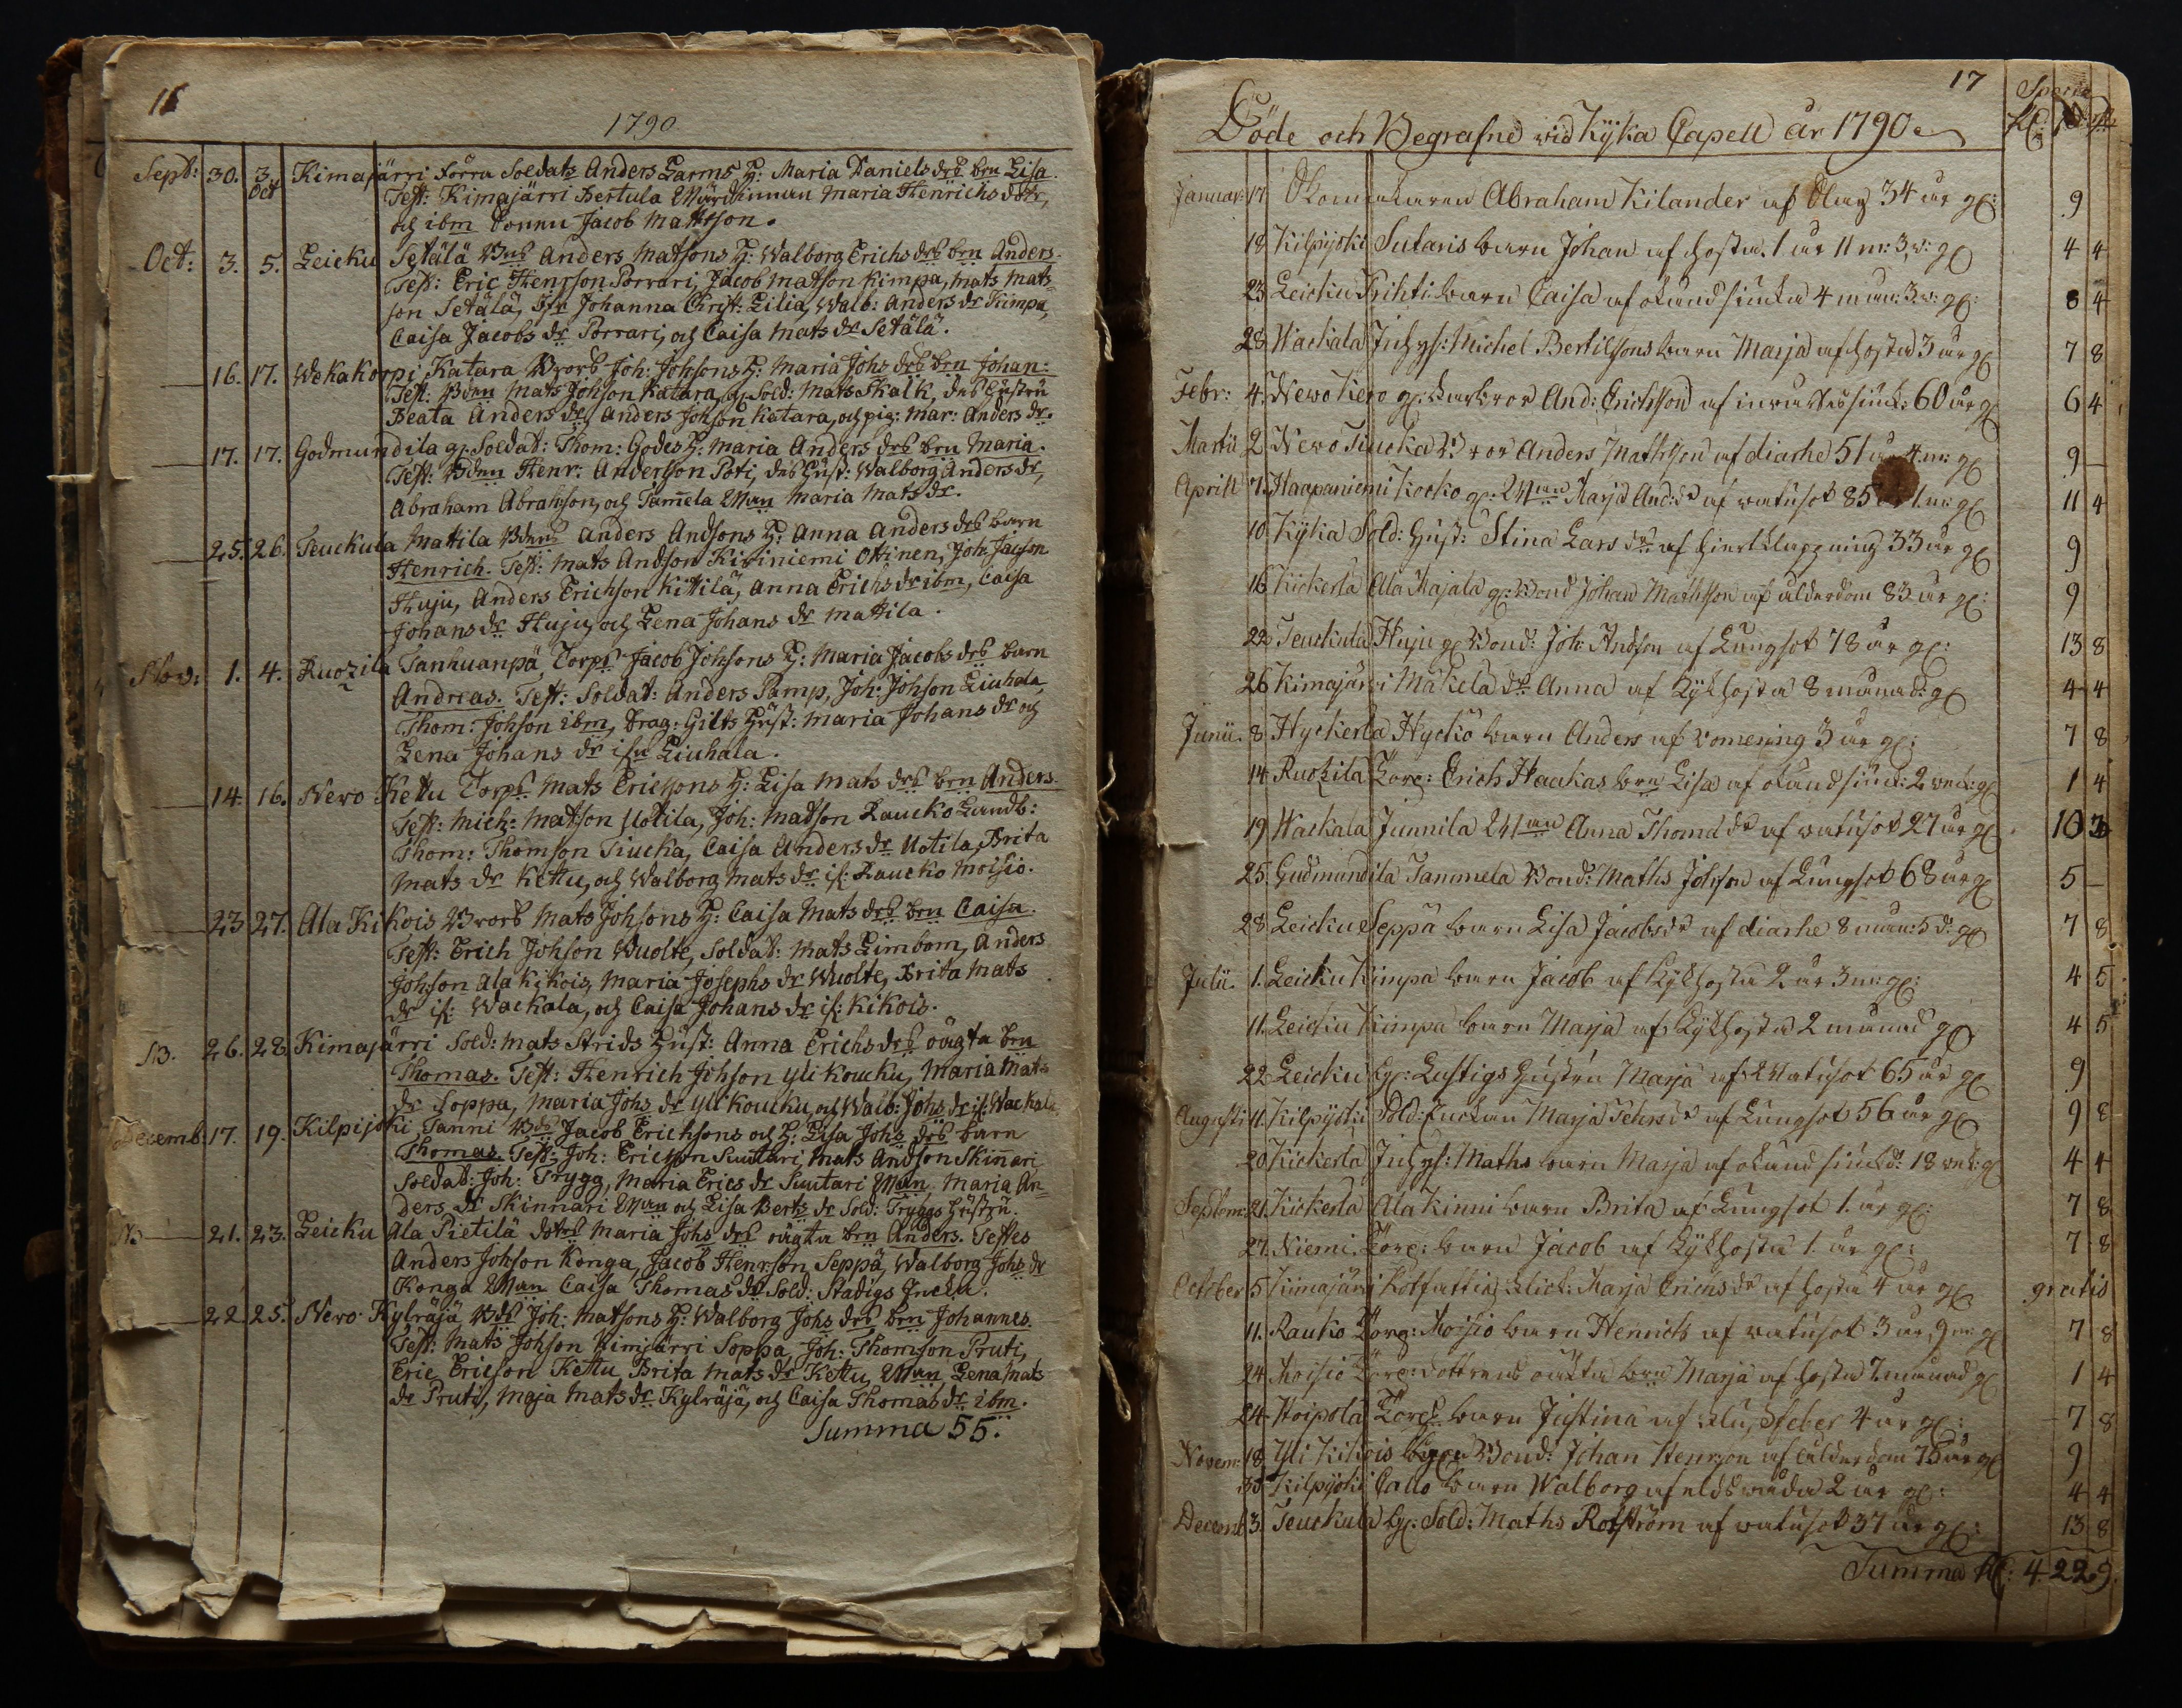 16
1790
Sept: 30. 3. Oct Kimajärri förra Soldats Anders Harms H: Maria Daniels drs brn Lisa.
Test: Kimajärri Bertula Mäns qvinnan Maria Henrichs dotr,
och ibm Bonnn Jacob Mattsson.
Oct: 3. 5. Leicku Setälä Bns Anders Matsons H: Walborg Erichs drs brn Anders.
Test: Eric Henrsson Porrari, Jacob Matson Kimpa, Mats Mats-
son Setälä, Jfr Johanna Christ: Lilia, Walb: Anders dr Kimpa,
Caisa Jacobs dr Porrari, och Caisa Mats dr Setälä.
16. 17. Wekakorpi Katara Brorb Joh: Johsons H: Maria Johs drs brn Johan:
Test: Bdnn Mats Johson Katara, och Sold: Mats Skalk, des hustru
Beata Anders dr, Anders Johson Katara, och pig: Mar: Anders dr.
17. 17. Godmundila gl. Soldat: Thom: Godes H: Maria Anders drs brn Maria.
Test: Bdnn Henr: Anderson Poti, des hust: Walborg Anders dr,
Abraham Abrahson, och Tammela Mnn Maria Mats dr.
25. 26. Teuckula Matila Bdns Anders Andsons H: Anna Anders drs barn
Henrich. Test: Mats Andson Kiviniemi Ottinen, Joh: Jacson
Huju, Anders Erichson Kitilä, Anna Erichs dr ibm, Caisa
Johans dr Huju, och Lena Johans dr Mattila.
Nov: 1. 4. Ruozila Tanhuanpä, Torps Jacob Johsons H: Maria Jacobs drs barn
Andreas. Test: Soldat: Anders Pamp, Joh: Johson Liuhala,
Thom: Johson ibm, Drag: Gilts Hust: Maria Johans dr och
Lena Johans dr ifr Liuhala.
14 16. Nero Kettu Torps Mats Ericssons H: Lisa Mats drs brn Anders.
Test: Mich: Matson Uotila, Joh: Madson Raucko Landb:
Thom: Thomson Tiucka, Caisa Anders dr Uotila, Brita
Mats dr Kettu, och Walborg Mats dr if: Raucko Moisio.
23 27. Ala Kikois Brorb Mats Johsons H: Caisa Mats drs brn Caisa.
Test: Erich Johson Wuolte, Soldat: Mats Limbom, Anders
Johson Ala Kikois, Maria Josephs dr Wuolte, Brita Mats
dr if: Wackala, och Caisa Johans dr if: Kikois.
NB. 26. 28. Kimajärri Sold: Mats Strids Hust: Anna Erichs drs oägta brn
Thomas. Test: Henrich Johson Yli Koucku, Maria Mats
dr Soppa, Maria Johs dr Yli Koucku, och Walb: Johs dr if: Wackala
Decemb: 17. 19. Kilpijoki Tanni Bds Jacob Erichsons och H: Lisa Johs drs barn
Thomas. Test: Joh: Ericsson Suutari, Mats Andson Skinnari
Soldat: Joh: Trygg, Maria Erics dr Suutari Mnn, Maria An-
ders dr Skinnari Mnn och Lisa Berts dr Sold: Tryggs Hustru.
NB 21. 23. Leicku Ala Pietilä dotrs Maria Johs drs oägta brn Anders. Testes
Anders Johson Konga, Jacob Henrson Seppä, Walborg Johs dr
Konga Mnn Caisa Thomas dr Sold: Stadigs Encka.
22. 25. Nero Kylräjä Bds Joh: Matsons H: Walborg Johs drs brn Johannes.
Test: Mats Johson Kimjärri Soppa, Joh: Thomson Pruti,
Eric Ericson Kettu, Brita Mats dr Kettu, Mnn Lena Mats
dr Pruti, Maja Mats dr Kylräjä, och Caisa Thomas dr ibm.
Summa 55.
17
Döde och Begrafne vid Kyka Capell år 1790
Januar: 17 Skomakaren Abraham Kilander af slag 34 år gl: 9
18 Kilpijoki Sutaris barn Johan af hosta. 1 år 11 m: 3 v: gl 4 4
23 Leicku Prihti barn Caisa af okänd siuka 4 mån: 3 v: gl: 8 4
28 Wackala Inhys: Michel Bertilsons barn Marja af hosta 3 år gl 7 8
Febr: 4. Nevo Kero gl: And: Erichsson af siuk: 60 år gl 6 4
Martii 2 Nevo Tiucka Anders Mathsson af diarhe 51 år 4 m: gl 9 –
Aprill 7. Haapaniemi Kocko gl: Marja And: dr af vatusot 85 år 1 m: gl 11 4
10 Kyka Sold: Hust: Stina Lars dr af hiertklappning 33 år gl 9
16 Kickerla Ala Majala gl: Bond Johan Mathsson af ålderdom 83 år gl: 9
22 Teuckula Huju gl Bond: Joh: Andson af Lungsot 78 år gl: 13 8
26 Kimajärri Mäkela dr Anna af Kykhosta 8 månad: gl 4 4
Junii. 8 Hyckerla Hyckö barn Anders af bomening 3 år gl: 7 8
14 Ruozila Torp: Erich Haakas brn Lisa af okänd siuk: 2 vek: gl 1 4
19 Wackala Junnila Anna Thoma dr af vatusot 27 år gl 10
25. Gudmundila Tammela Bond: Maths Johsson af Lungsot 68 år gl 5 –
28 Leicku Seppä barn Lisa Jacobs dr af diarhe 8 mån: 5 d: gl 7 8
Julii. 1. Leicku Kimpa barn Jacob af Kykhosta 2 år 3 m: gl: 4 5
11. Leicku Kimpa barn Marja af Kykhosta 2 månad gl 4 5
22 Leicku gl: Lustigs Hustru Marja af Watusot 65 år gl 9
Augusti 11. Kilpijoki Sold: Enckan Marja Pehrs dr af Lungsot 56 år gl 9 8
20 Kickerla Inhys: Maths barn Marja af okänd siuk: 18 vek: gl 4 4
Septem: 21. Kickerla Ala Kinni barn Brita af Lungsot 1. år gl: 7 8
27. Niemi Torp: barn Jacob af Kykhosta 1. år gl: 7 8
October 5 Kimajärri Rotfattig Flick: Marja Erichs dr af hosta 4 år gl gratis
11. Rauko Torp: Moisio barn Henrich af vatusot 3 år, 9 m: gl 7 8
24 Moisio Torp: dotrens oäkta brn Marja af hosta 7. månad gl 1 4
24 Hoipola Torps barn Justina af feber 4 år gl: 7 8
Novem: 18 Yli Kikois Bond: Johan Henrson af ålderdom 75 år gl 9
30 Kilpijoki Callo barn Walborg af eldsvåda 2 år gl: 4 4
Decemb 3. Teuckula gl: Sold: Maths Rotström af vatusot 37 år gl: 13 8
Summa 4. 22 9.